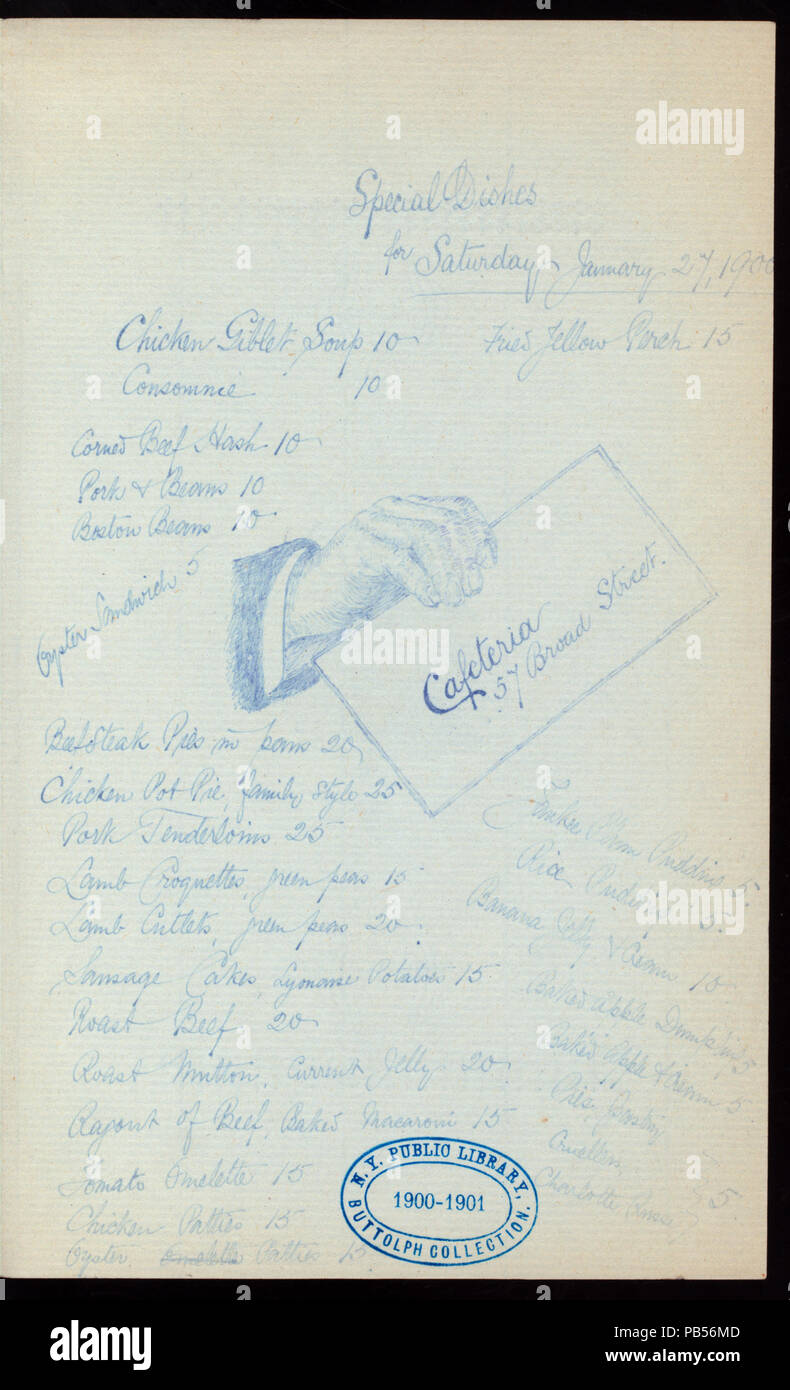 Special Dishes
for Saturday, January 27, 1900
Chicken Giblet Soup 10
Consommie 10
Fried Yellow Perch 15
Corned Beef Hash 10
Pork & Beans 10
Boston Beans 10
Oyster Sandwich 5
Cafeteria
57 Broad Street.
BeefSteak Pies in pans 20
Chicken Pot Pie, family style 25
Pork Tenderloins 25
Lamb Croquettes, green peas 15
Lamb Cutlets, green peas 20
Sausage Cakes, Lyonaise Potatoes 15
Roast Beef 20
Roast Mutton, Current Jelly 20
Ragout of Beef, Baked Macaroni 15
Tomato Omelette 15
Chicken Patties 15
Oyster Omelette Patties 15
Yankee Plum Pudding 5.
Rice Pudding 5.
Banana Jelly & Cream 10
Baked Apple Dumpling 5
Baked Apple & Cream 5
Pies, Pastry
Crullers,
Charlotte Russe 5.
N.Y. PUBLIC LIBRARY,
1900-1901
BUTTOLPH COLLECTION.
alamy
alamy
Image ID: PB56MD
www.alamy.com